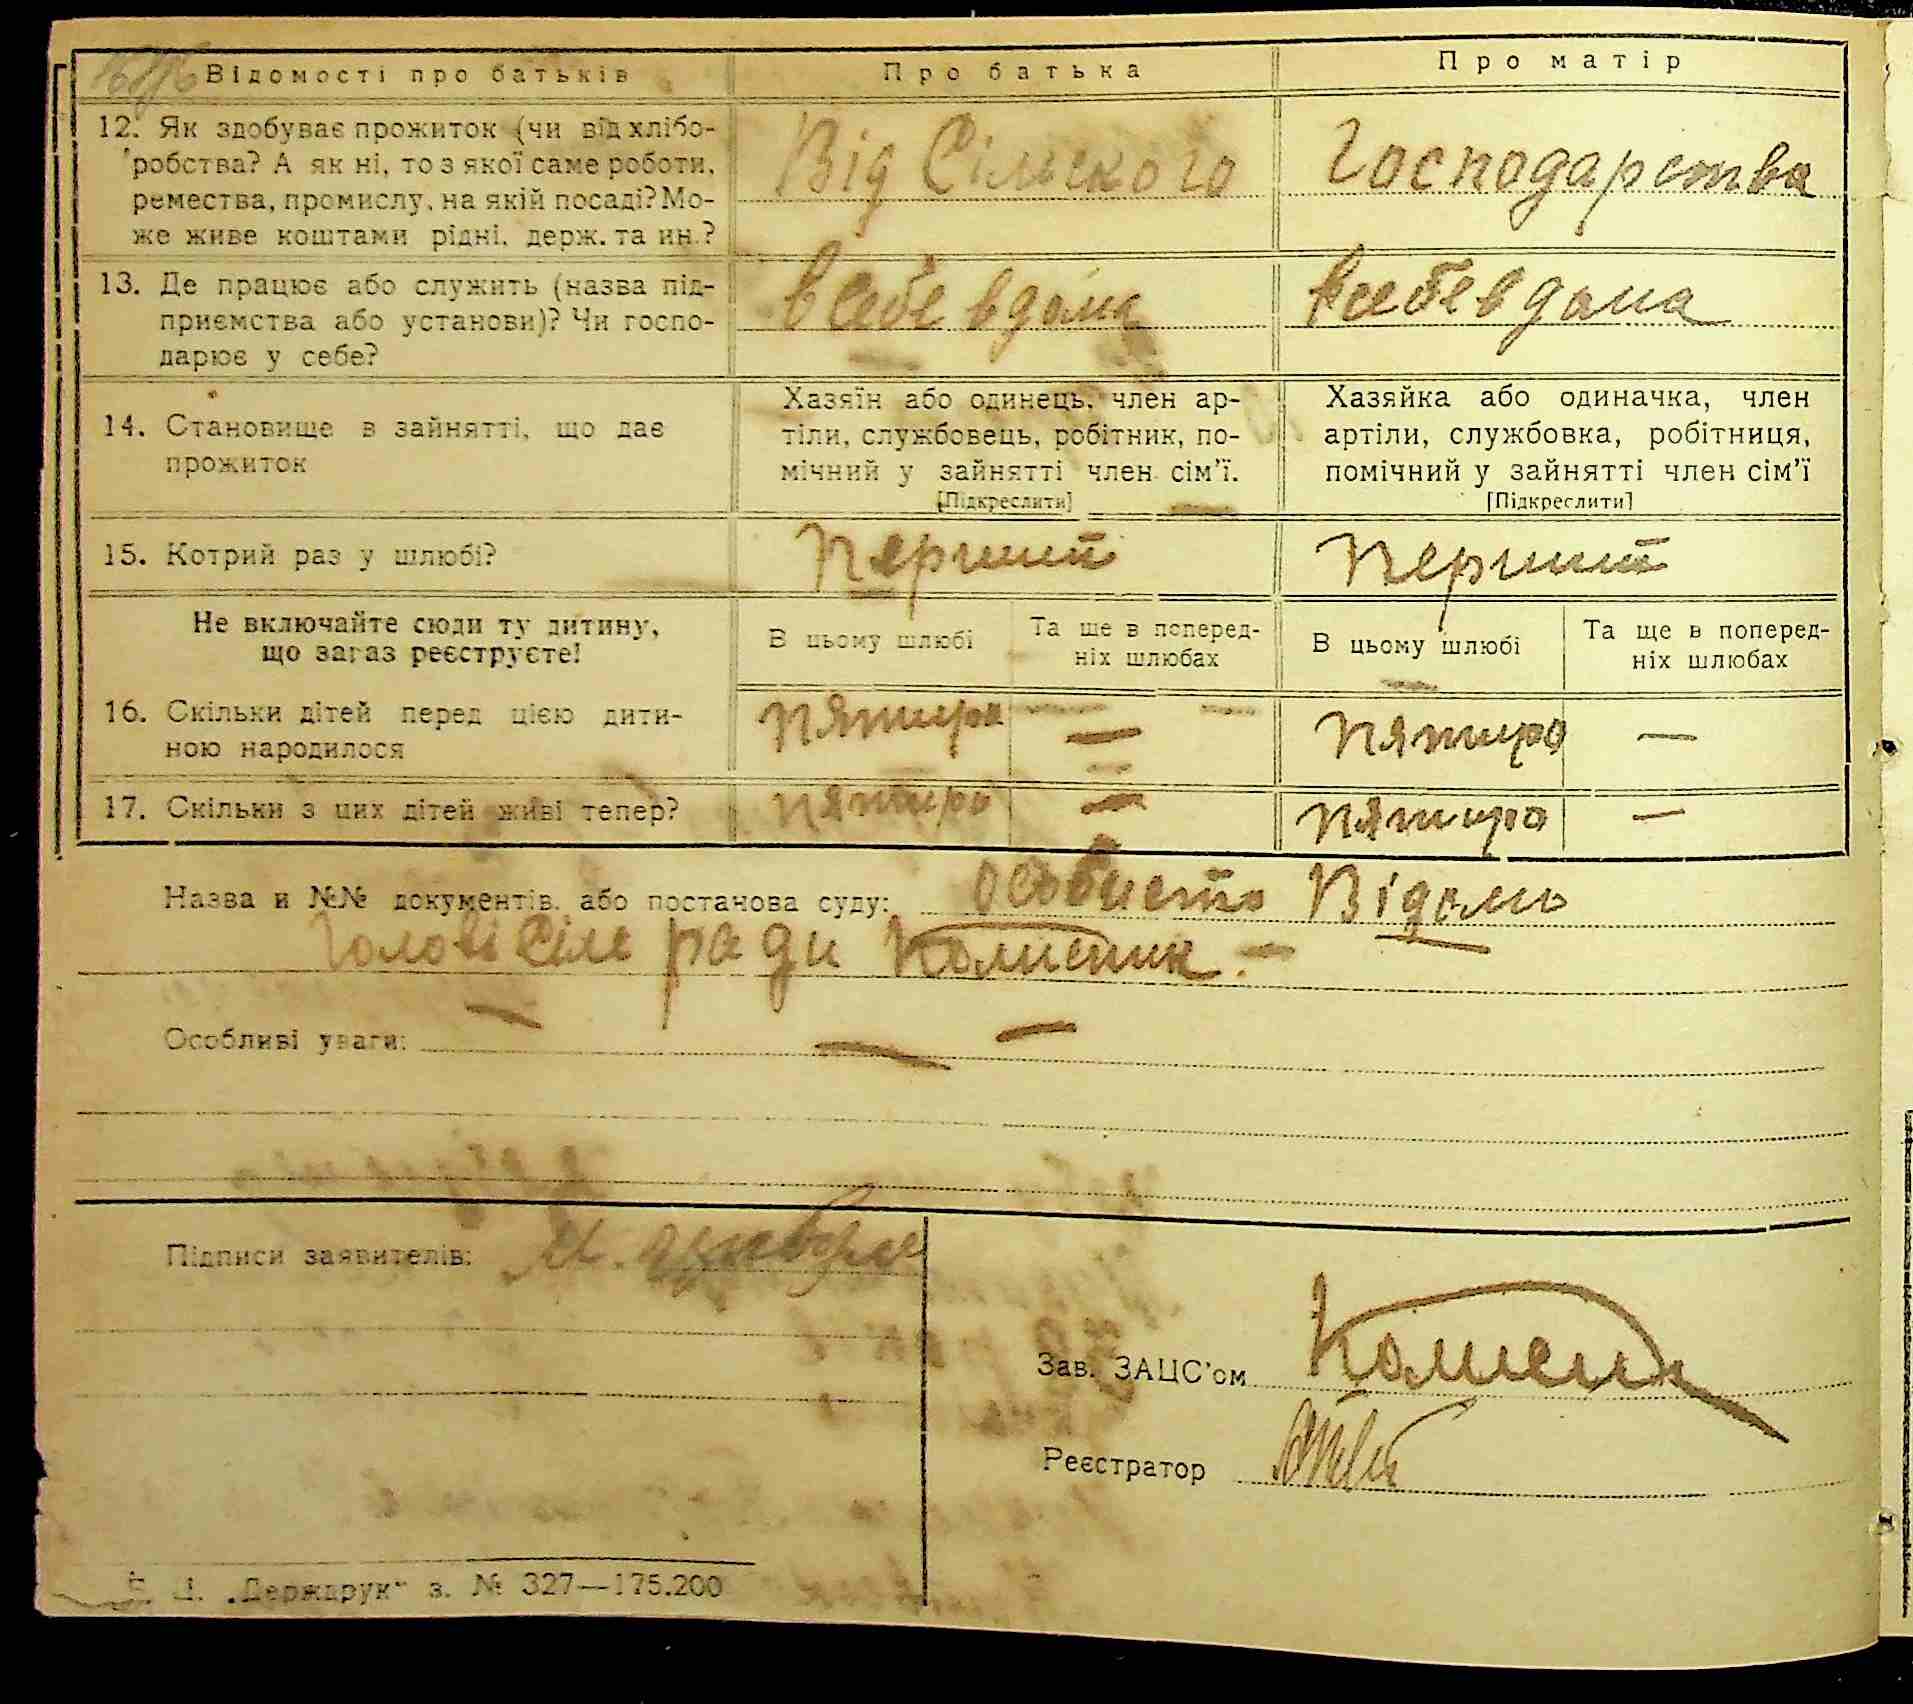 Відомості про батьків
Про батька
Про матір
12. Як здобуває прожиток (чи від хлібо-
робства? А як ні, то з якої саме роботи,
ремества, промислу, на якій посаді? Мо-
же живе коштами рідні, держ. та ин.?
Від Сільского
Господарства
13. Де працює або служить (назва під-
приємства або установи)? Чи госпо-
дарює у себе?
в себе вдома
в себе вдома
14. Становище в зайнятті, що дає
прожиток
Хазяїн або одинець, член ар-
тіли, службовець, робітник, по-
мічний у зайнятті член сім'ї.
[Підкреслити]
Хазяйка або одиначка, член
артіли, службовка, робітниця,
помічний у зайнятті член сім'ї
[Підкреслити]
15. Котрий раз у шлюбі?
Перший
Перший
Не включайте сюди ту дитину,
що зараз реєструєте!
В цьому шлюбі
Та ще в поперед-
ніх шлюбах
В цьому шлюбі
Та ще в поперед-
ніх шлюбах
16. Скільки дітей перед цією дити-
ною народилося
пятиро
—
пятиро
—
17. Скільки з цих дітей живі тепер?
пятиро
—
пятиро
—
Назва и №№ документів, або постанова суду: особисто Відомо
Голові Сіль ради
Особливі уваги: —
Підписи заявителів:
Зав. ЗАЦС'ом
Реєстратор
„Держдрук" з. № 327—175.200